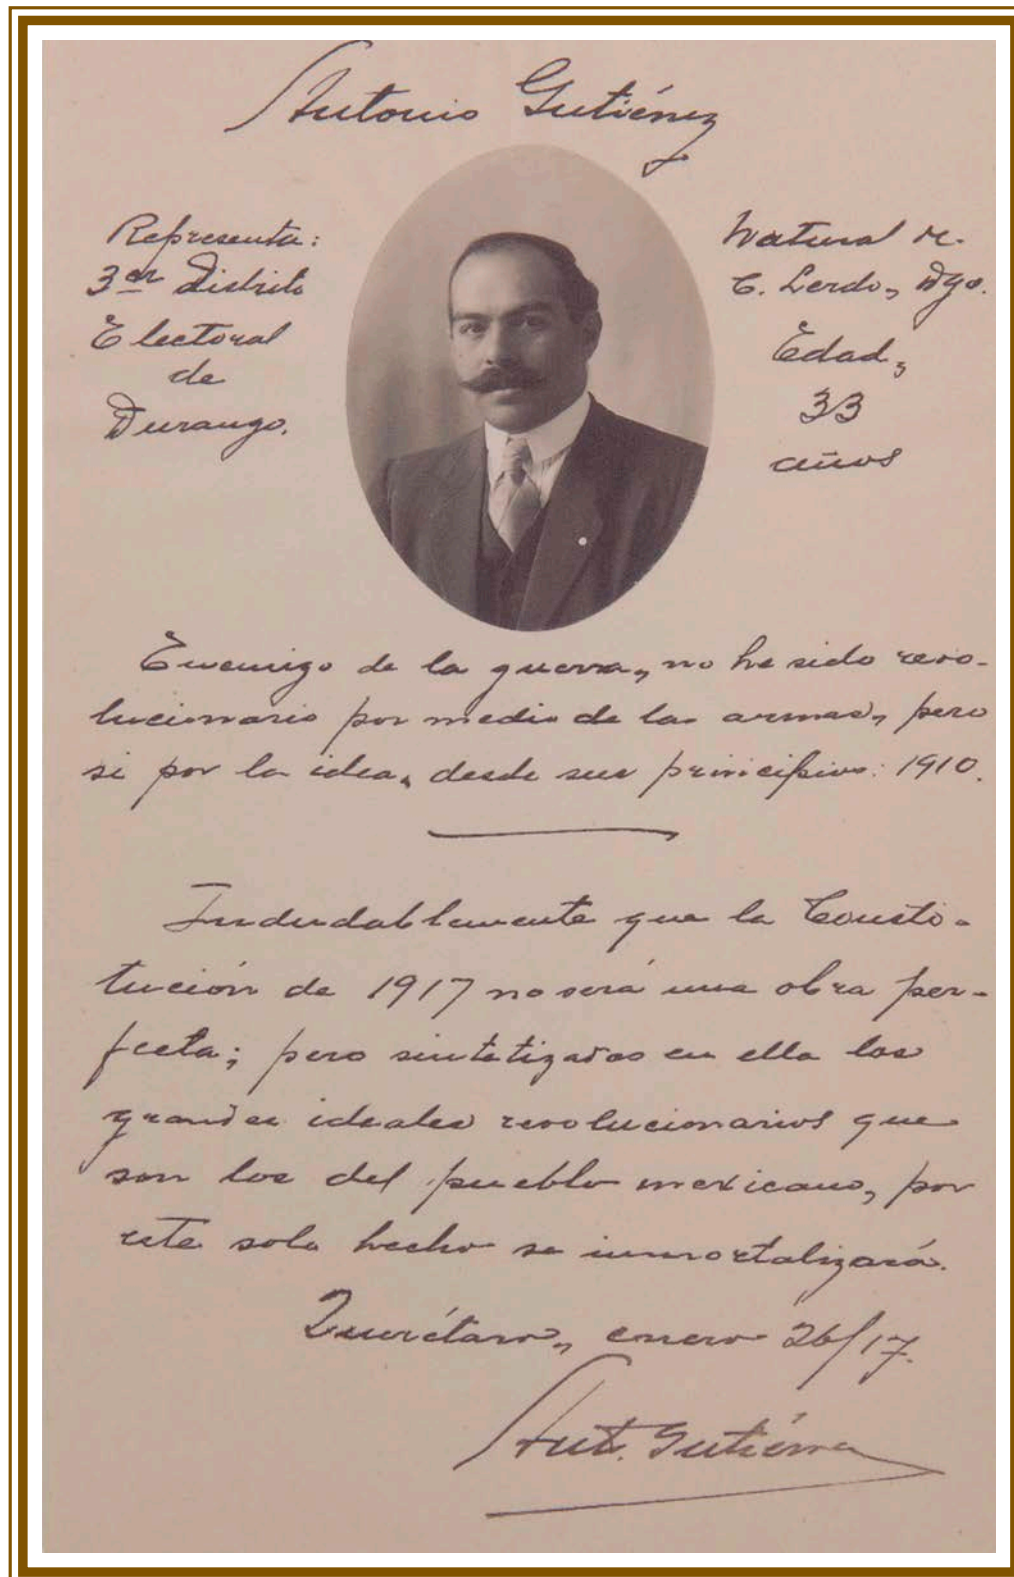 Antonio Gutiérrez
Representa:
3er Distrito
Electoral
de
Durango.
Natural de
C. Lerdo, Dgo.
Edad,
33
años
Enemigo de la guerra, no he sido revo-
lucionario por medio de las armas, pero
si por la idea, desde sus principios: 1910.
Indudablemente que la Consti-
tución de 1917 no será una obra per-
fecta; pero sintetizados en ella los
grandes ideales revolucionarios que
son los del pueblo mexicano, por
este solo hecho se inmortalizará.
Querétaro, enero 26/17.
Ant. Gutiérrez